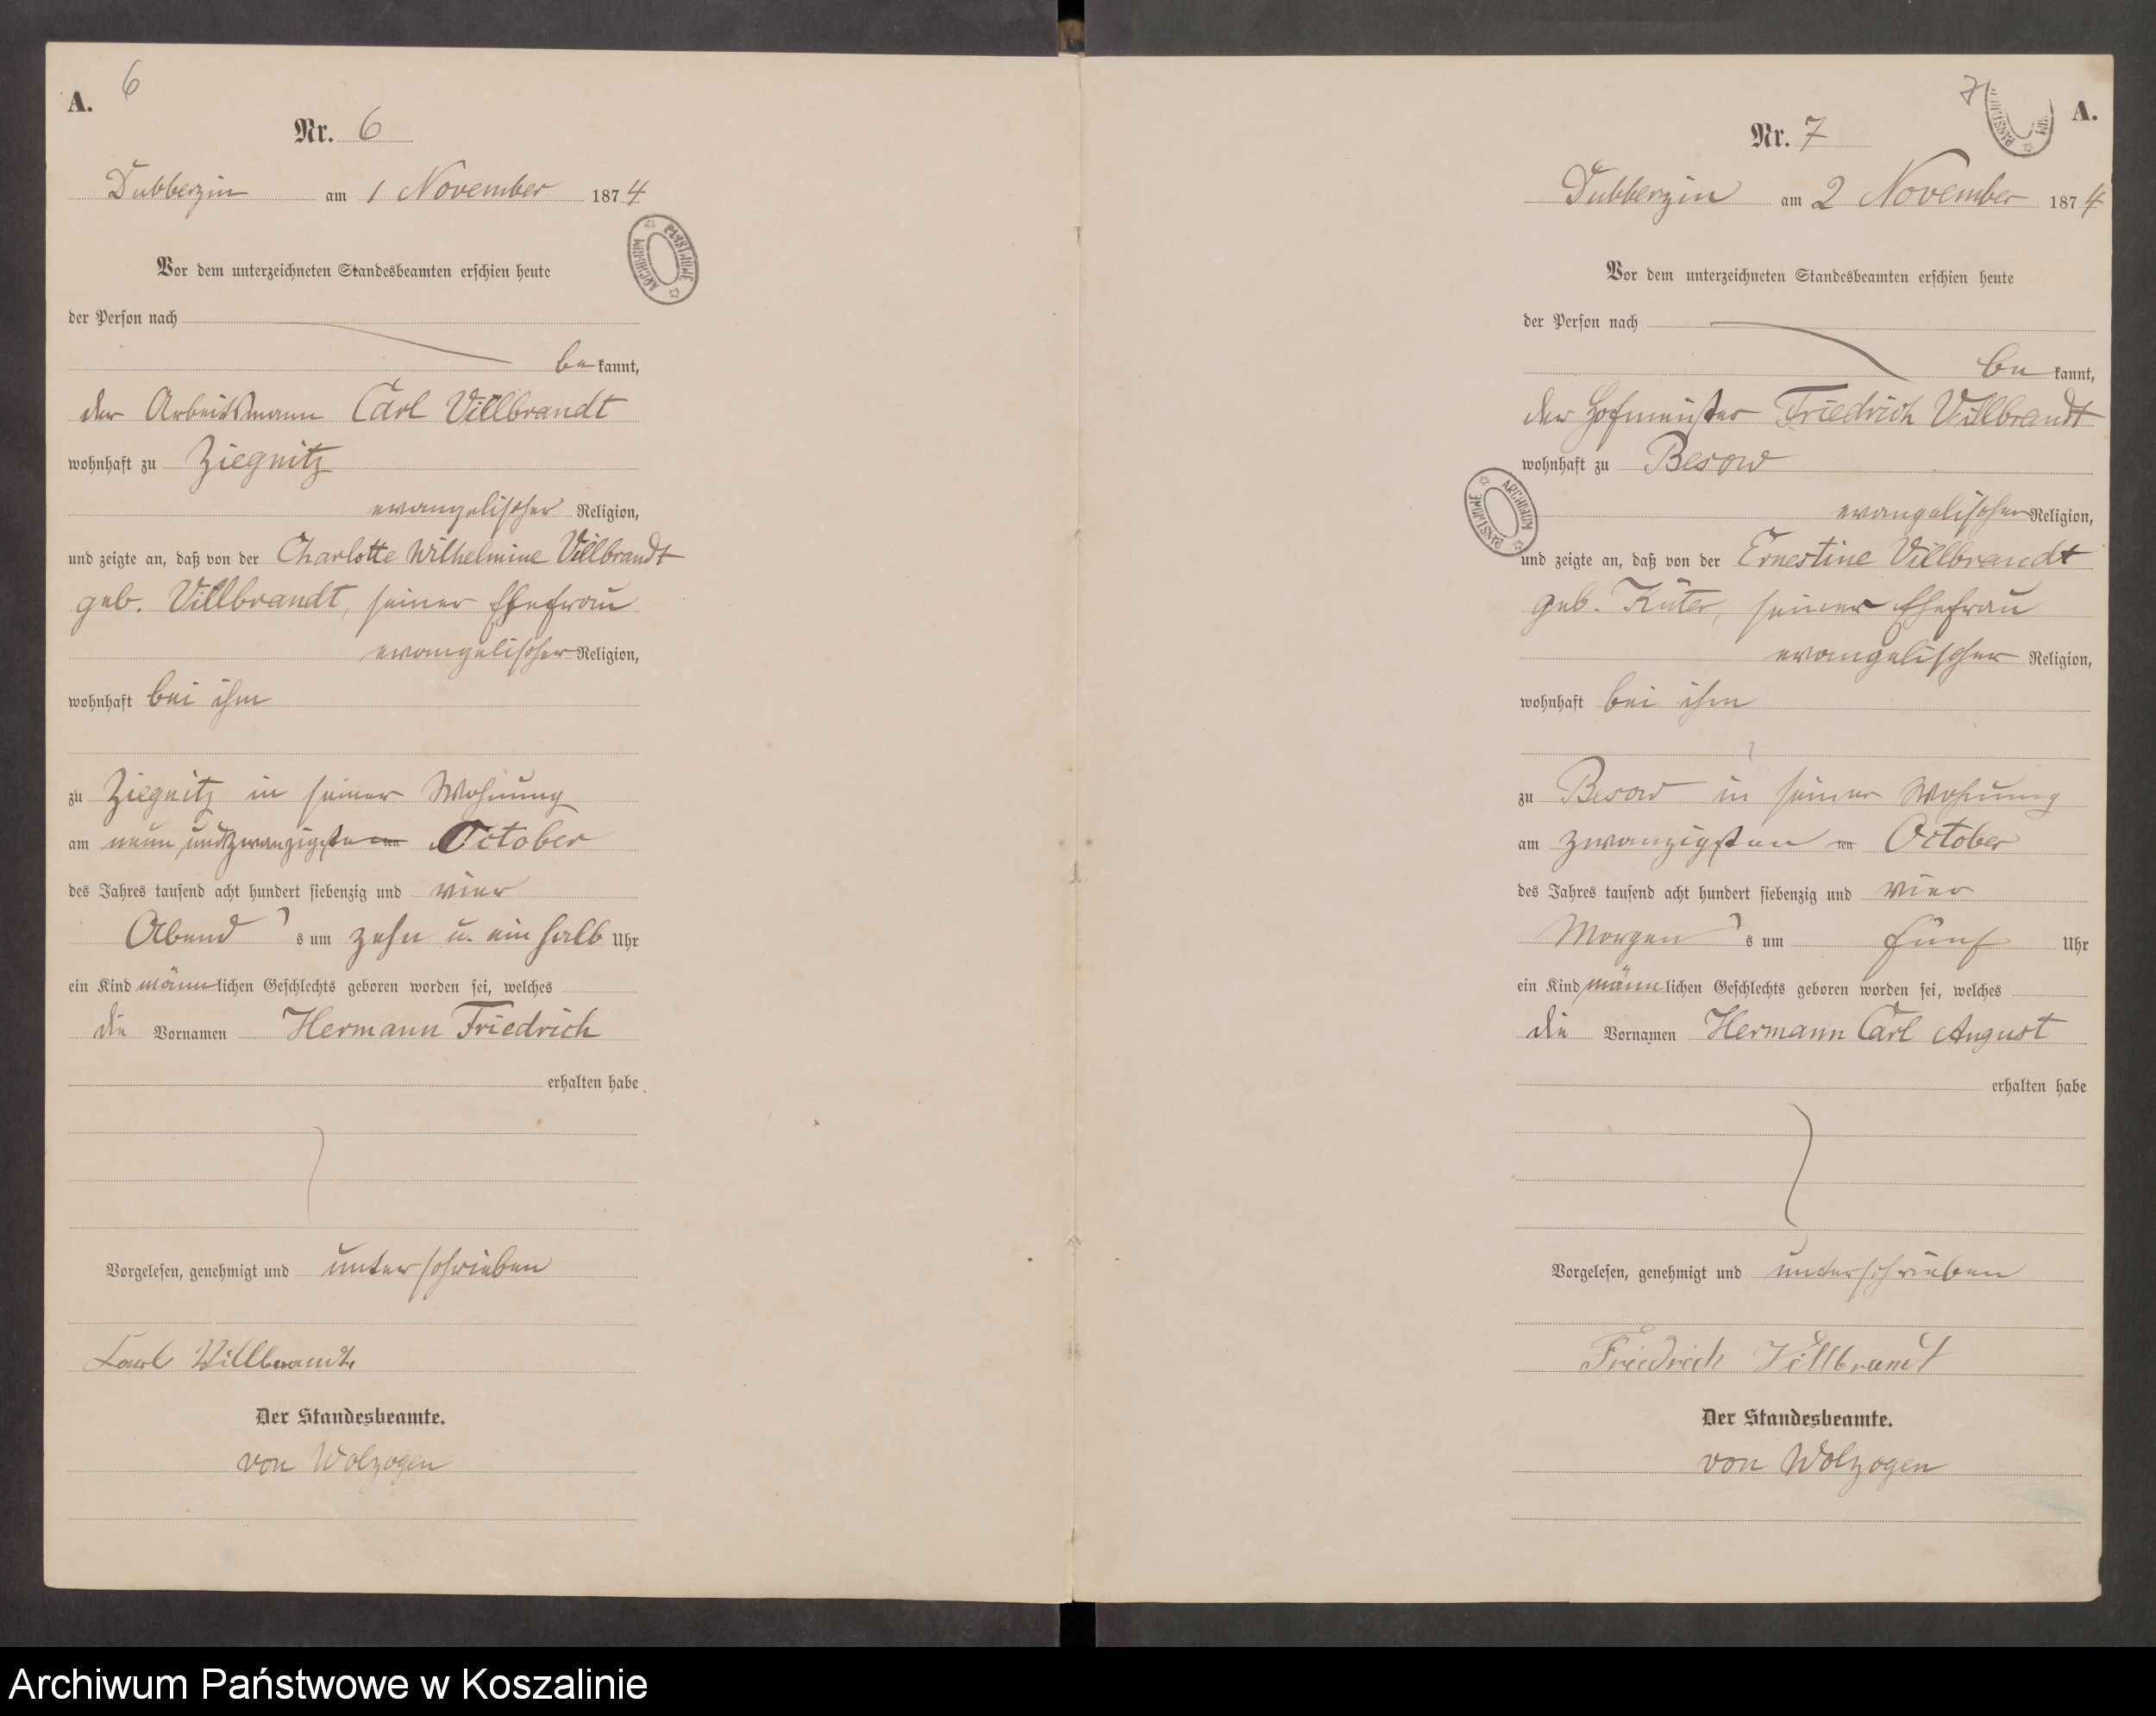 A. 6
Nr. 6
Dubberzin am 1 November 1874
Vor dem unterzeichneten Standesbeamten erschien heute
der Person nach
be kannt,
der Arbeitsmann Carl Villbrandt
wohnhaft zu Ziegnitz
evangelischer Religion,
und zeigte an, daß von der Charlotte Wilhelmine Villbrandt
geb. Villbrandt, seiner Ehefrau
evangelischer Religion,
wohnhaft bei ihm
zu Ziegnitz in seiner Wohnung
am neun und zwanzigsten ten October
des Jahres tausend acht hundert siebenzig und vier
Abend s um zehn u. ein halb Uhr
ein Kind männlichen Geschlechts geboren worden sei, welches
die Vornamen Hermann Friedrich
erhalten habe.
Vorgelesen, genehmigt und unterschrieben
Karl Willbrandt
Der Standesbeamte.
von Wolzogen
ARCHIWUM PAŃSTWOWE
7 A.
Nr. 7
Dubberzin am 2 November 1874
Vor dem unterzeichneten Standesbeamten erschien heute
der Person nach
be kannt,
der Hofmeister Friedrich Villbrandt
wohnhaft zu Besow
evangelischer Religion,
und zeigte an, daß von der Ernestine Villbrandt
geb. Küter, seiner Ehefrau
evangelischer Religion,
wohnhaft bei ihm
zu Besow in seiner Wohnung
am zwanzigsten ten October
des Jahres tausend acht hundert siebenzig und vier
Morgen s um fünf Uhr
ein Kind männlichen Geschlechts geboren worden sei, welches
die Vornamen Hermann Carl August
erhalten habe
Vorgelesen, genehmigt und unterschrieben
Friedrich Villbrandt
Der Standesbeamte.
von Wolzogen
ARCHIWUM PAŃSTWOWE
Archiwum Państwowe w Koszalinie